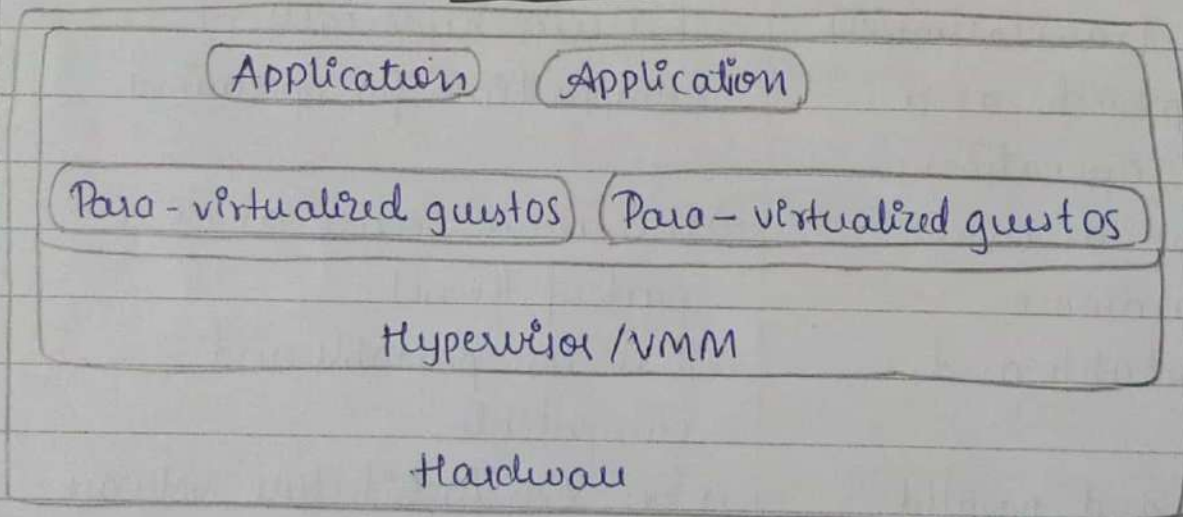 Application Application
Para-virtualized guestos Para-virtualized guest os
Hypervisor /VMM
Hardware